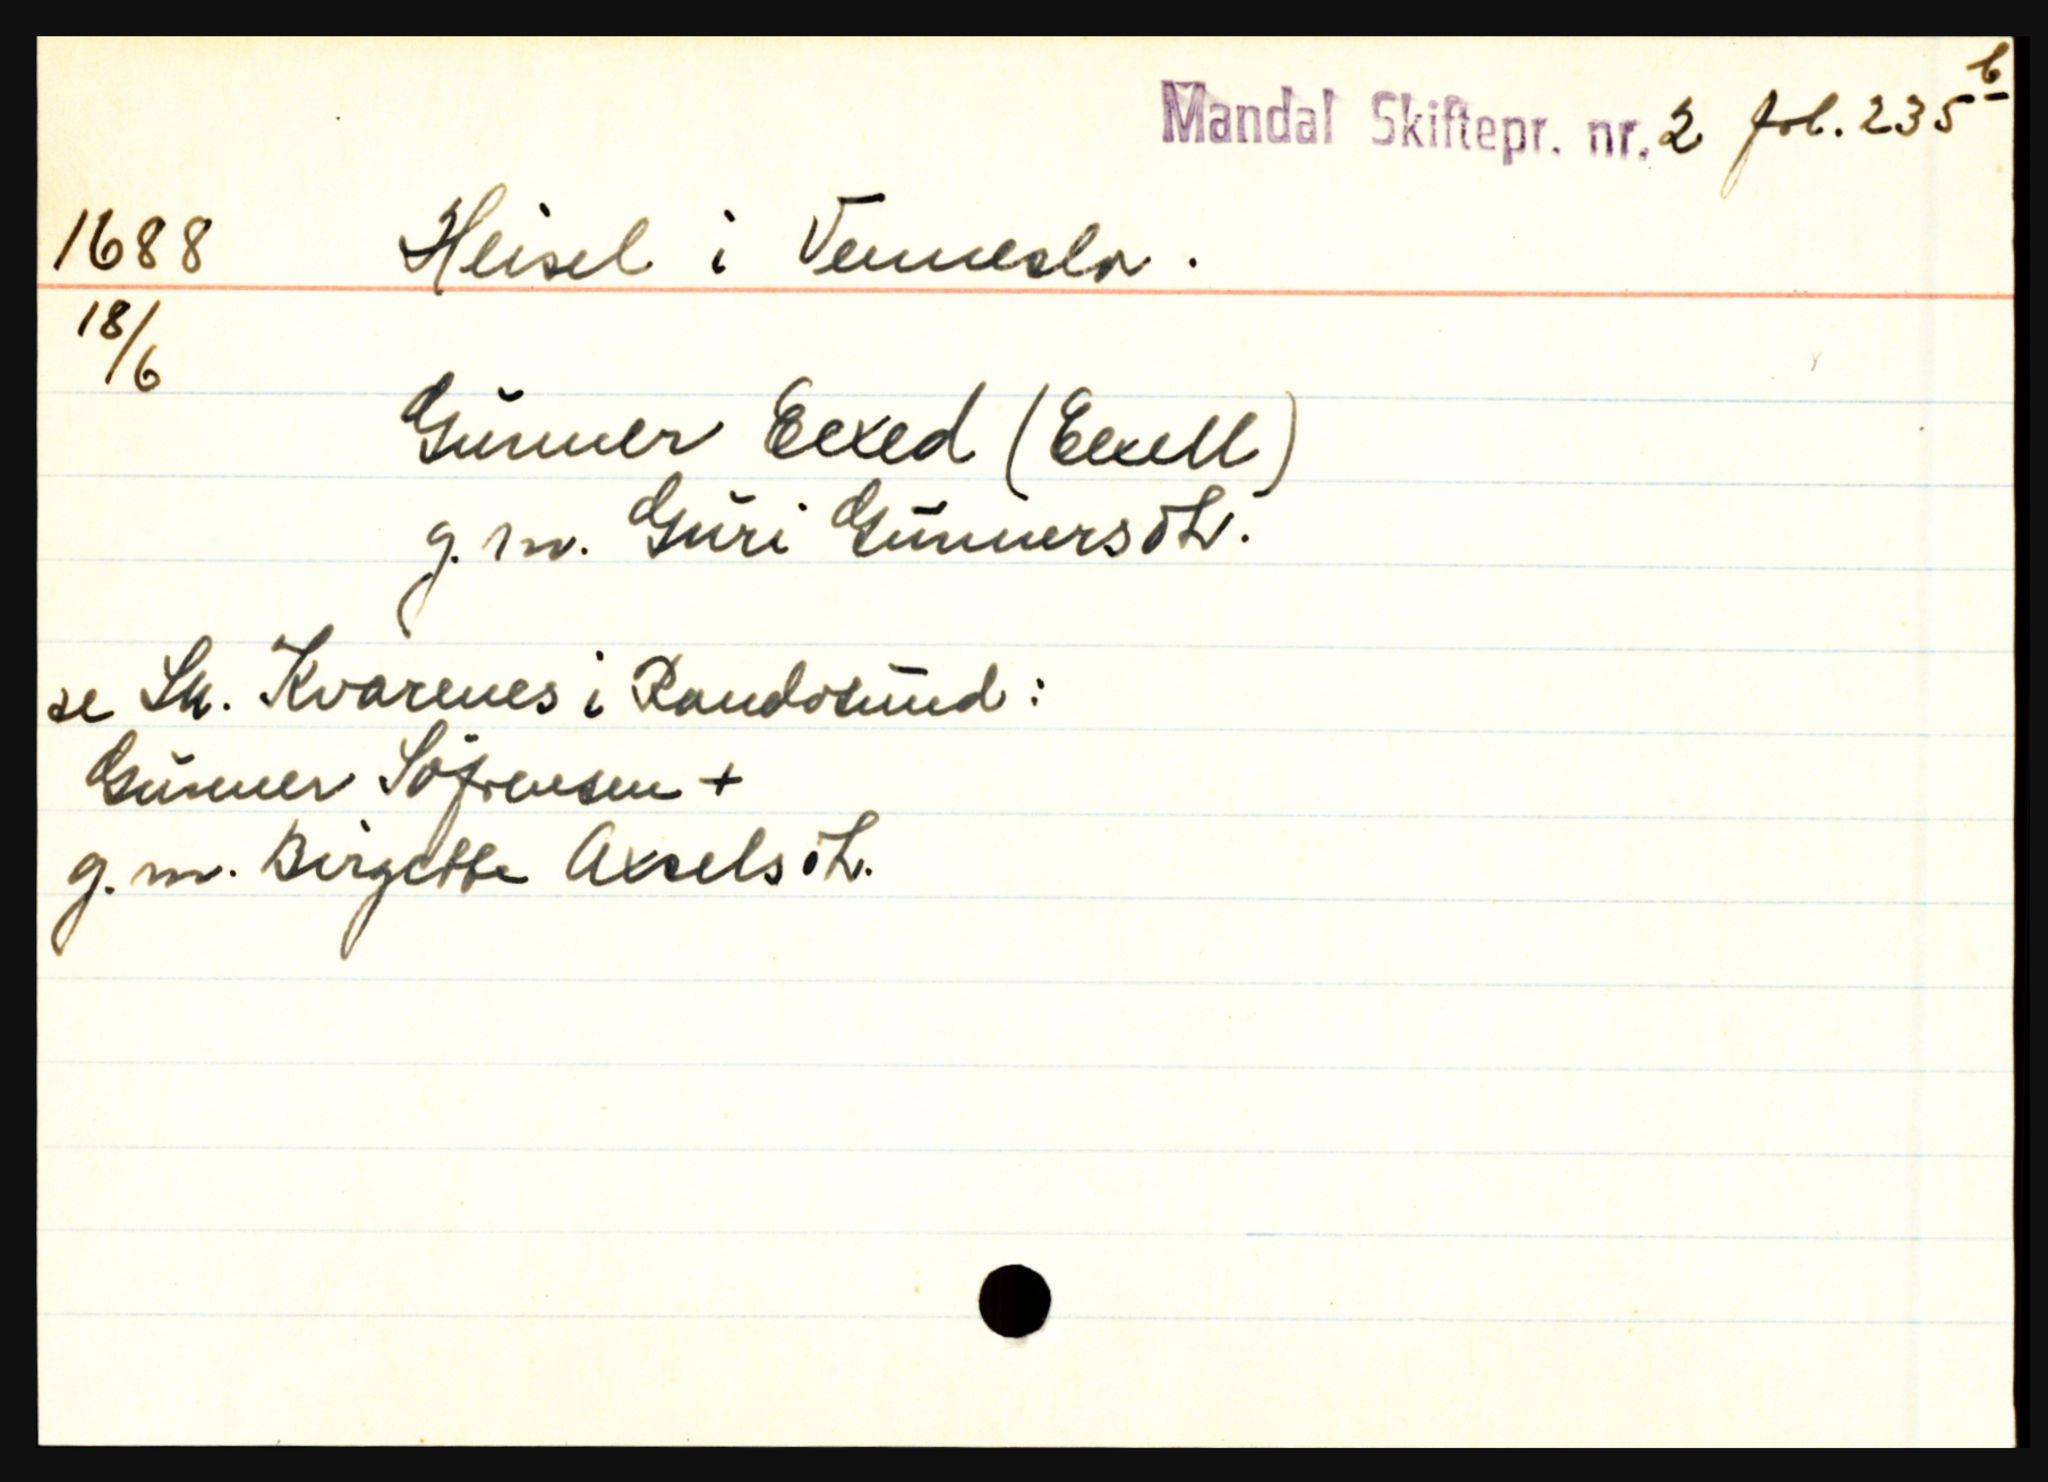 Mandal Skiftepr. nr. 2 fol. 235 b
1688 Heisel i Vennesla.
18/6
Gunner Eexed (Eexell)
g. m. Guri Gunnersdt.
se Sk. Kvarenes i Randösund:
Gunner Söfrensen +
g. m. Birgette Axselsdt.